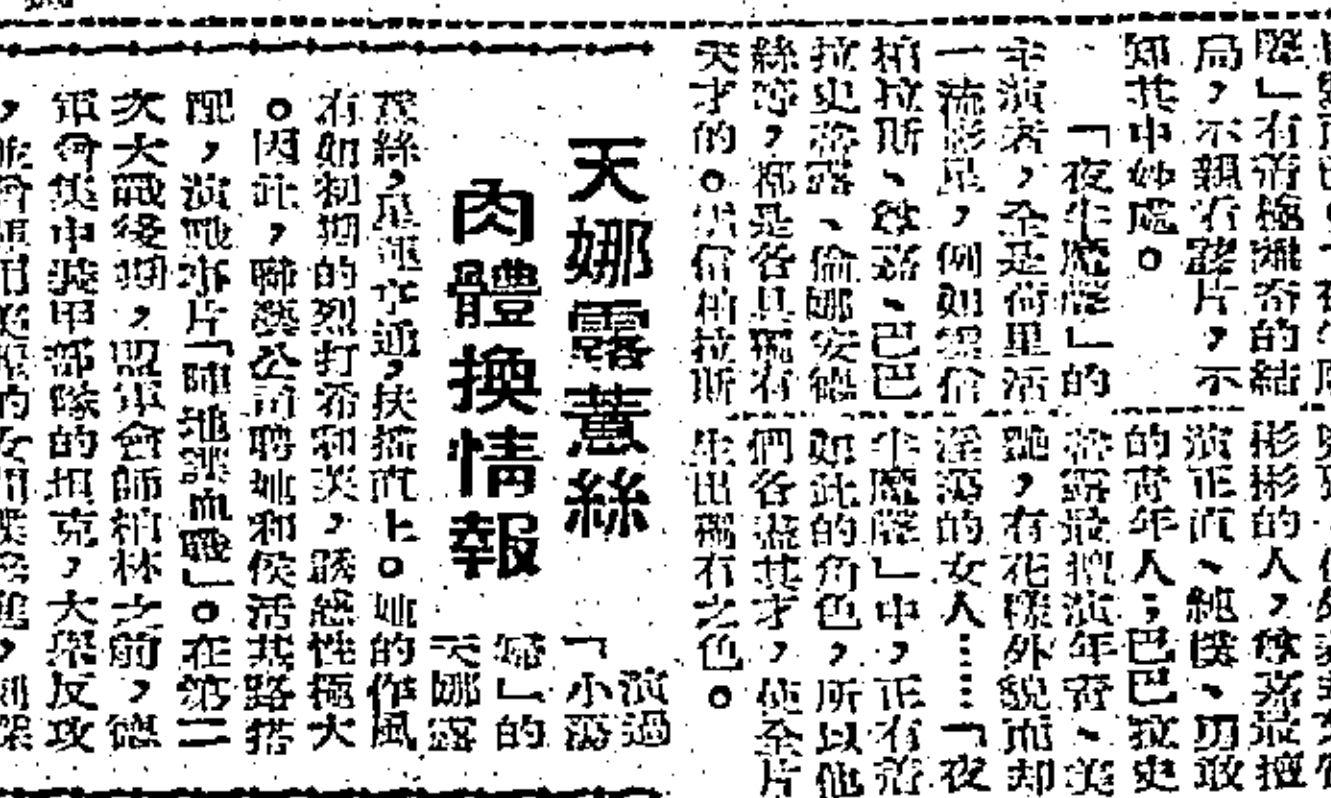 局，不親看影片，不
知其中妙處。
「夜半魔聲」的
主演者，全是荷里活
一流影星，例如
柏拉斯、敦嘉、巴巴
拉史露、倫娜安德
絲等，都是各具獨有
天才的。柏拉斯
彬彬的人，敦嘉最擅
演正直、純樸、勇敢
的青年人；巴巴拉史
露最擅演年青、美
艷，有花樣外貌而却
淫蕩的女人……「夜
半魔聲」中，正有着
如此的角色，所以他
們各盡其才，使全片
生出獨有之色。
天娜露薏絲
肉體換情報
演過
「小蕩
婦」的
天娜露
薏絲，星運亨通，扶搖直上。她的作風
有如初期的烈打希和夫，誘惑性極大
。因此，聯美公司聘她和侯活其路搭
配，演戰爭片「陣地諜血戰」。在第二
次大戰後期，盟軍會師柏林之前，德
軍曾集中裝甲部隊的坦克，大舉反攻